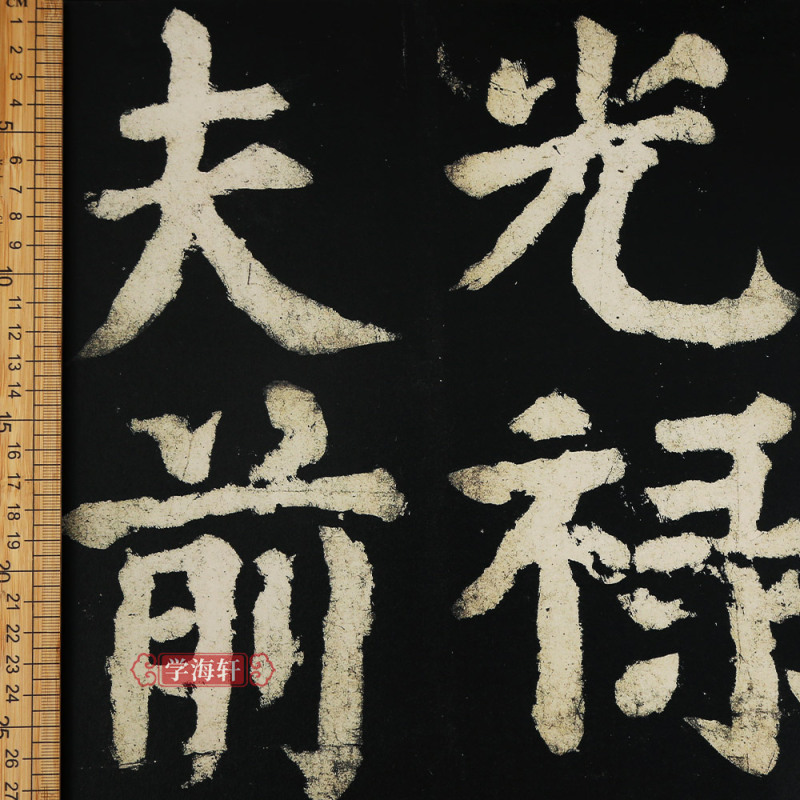 光禄
夫前
学海轩
1
2
3
4
5
6
7
8
9
10
11
12
13
14
15
16
17
18
19
20
21
22
23
24
25
26
27